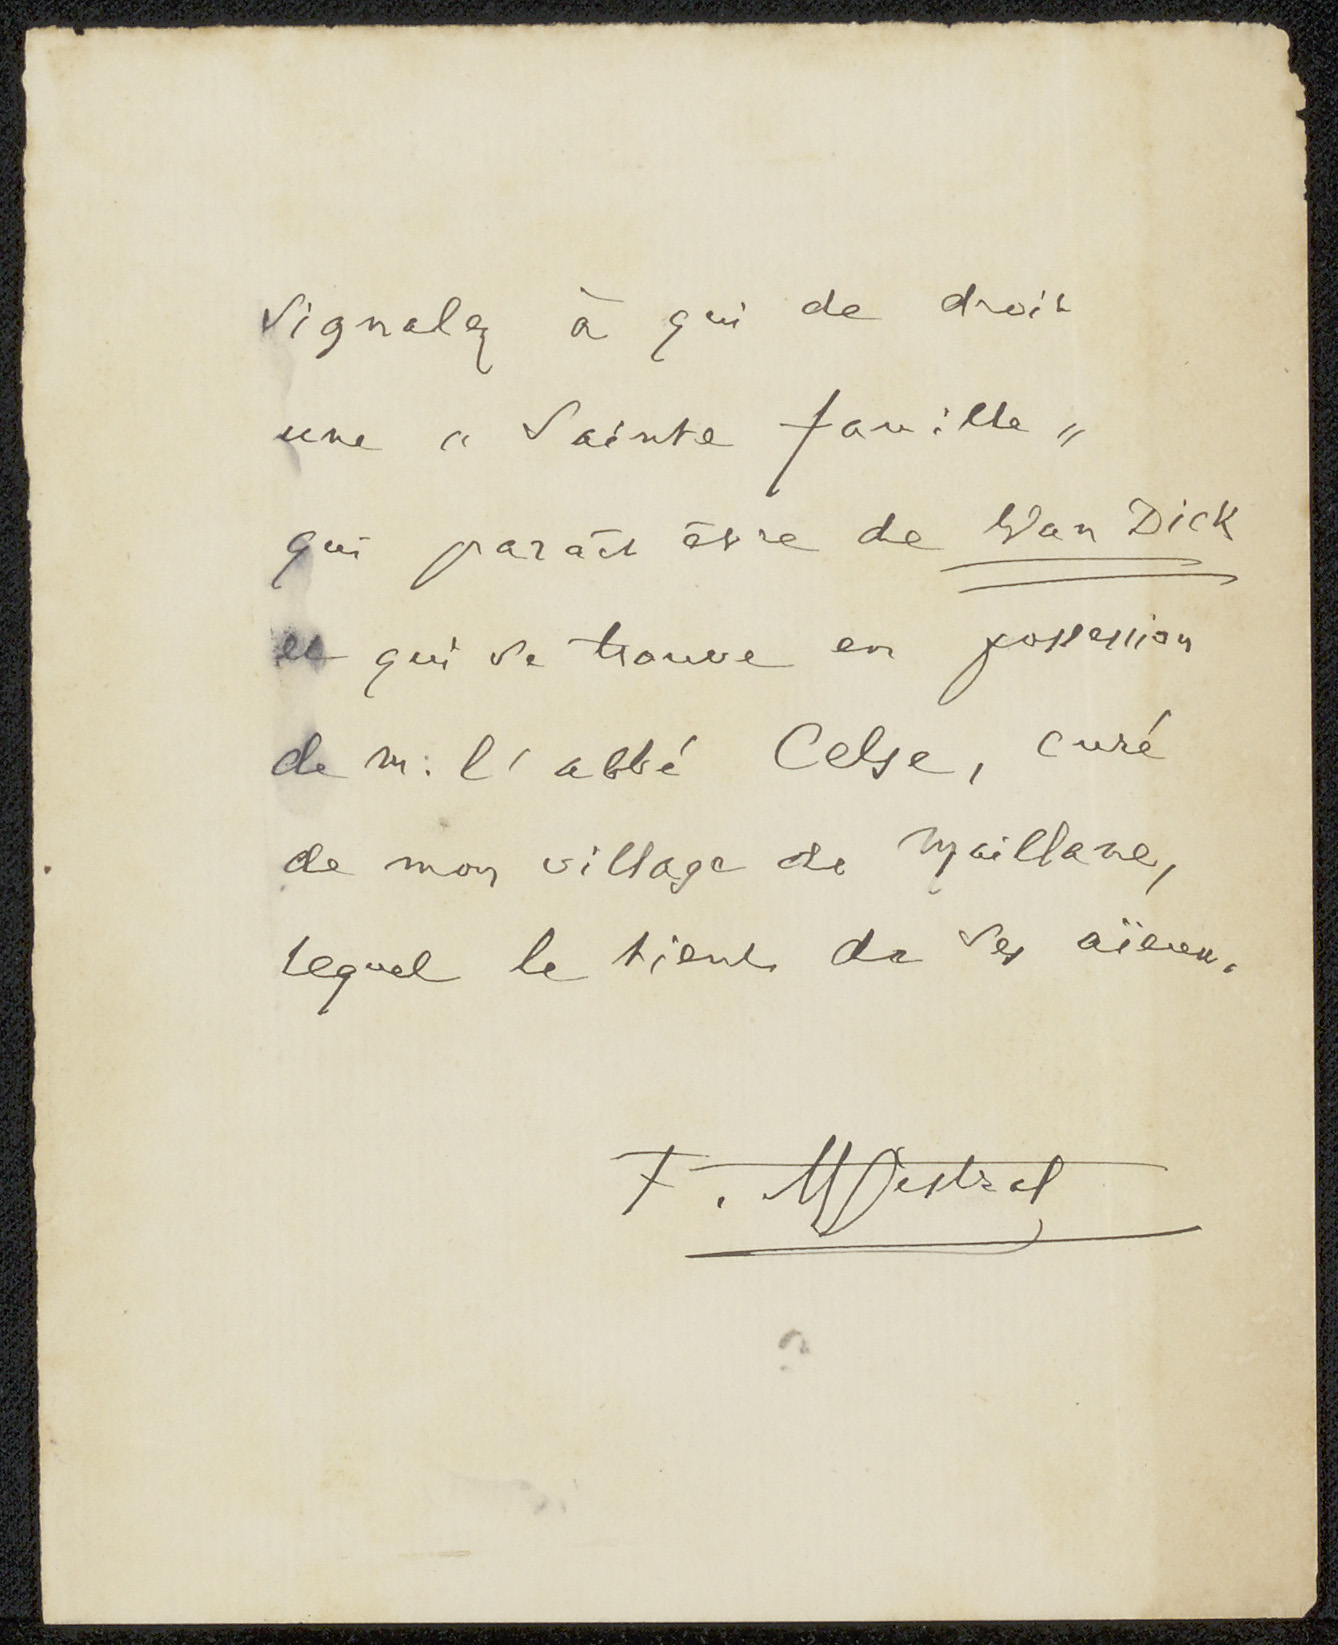 Signalez à qui de droit
une " Sainte famille "
qui paraît être de Wan Dick
et qui se trouve en possession
de m. l'abbé Celse, curé
de mon village de Maillane,
lequel le tient de ses aïeux.
F. Mistral